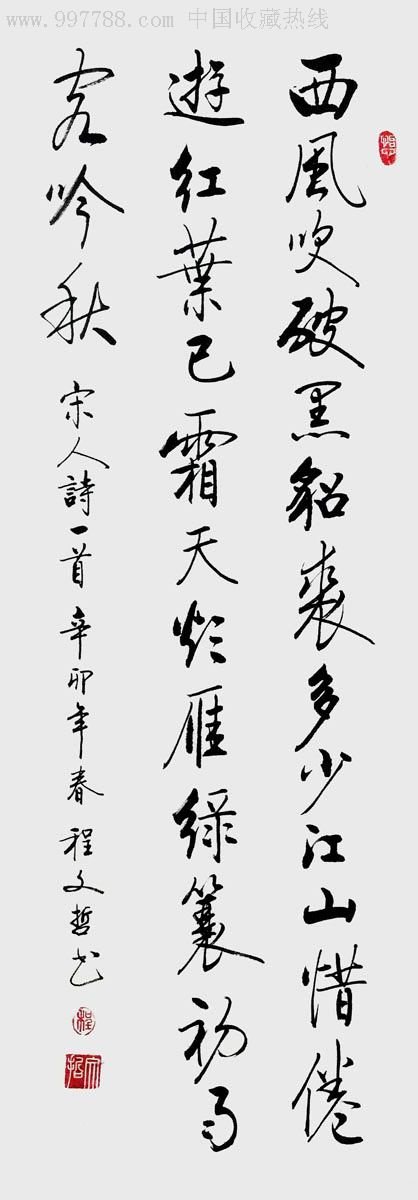 www.997788.com 中国收藏热线
西風吹破黑貂裘多少江山惜倦
遊紅葉已霜天欲雁綠簑初雨
客吟秋 宋人詩一首 辛卯年春 程文哲书
程